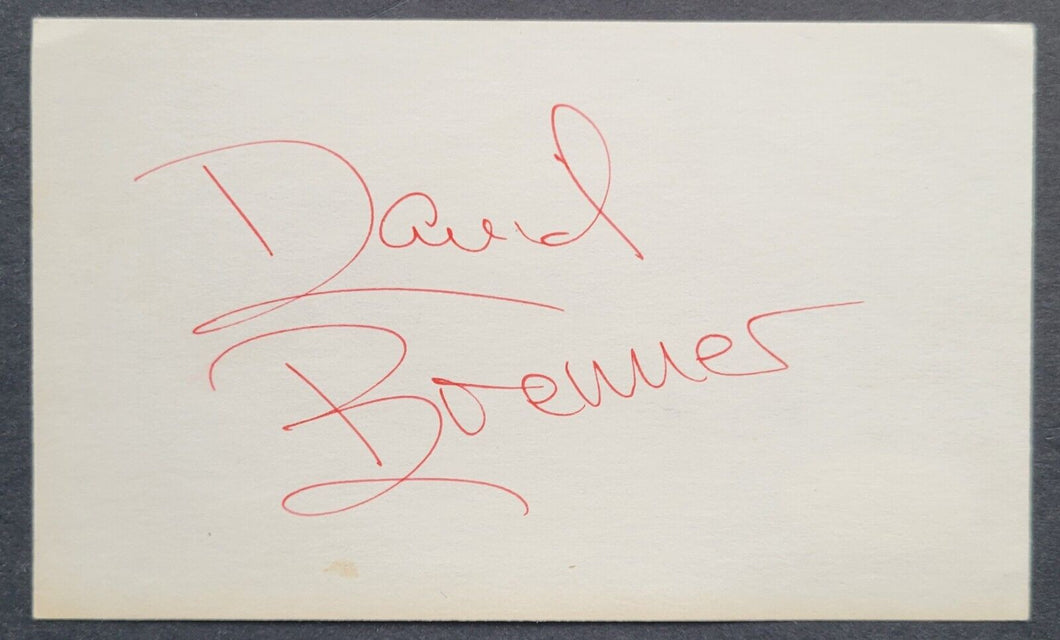 David
Brenner